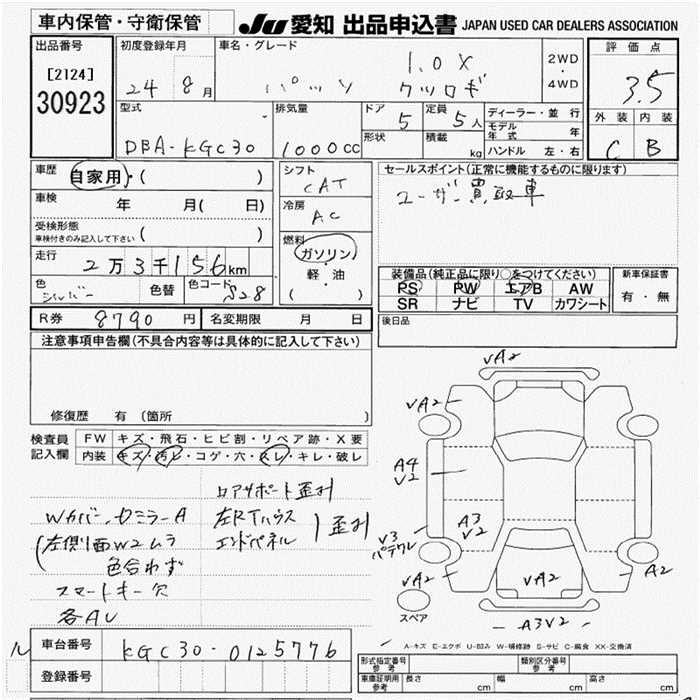 車内保管・守衛保管
JU 愛知 出品申込書 JAPAN USED CAR DEALERS ASSOCIATION
出品番号
[2124]
30923
初度登録年月
24 8月
車名・グレード
1.0X
パッソ クツロギ
2WD
・
4WD
評価点
3.5
外装 内装
C B
型式
DBA-KGC30
排気量
1000cc
ドア
5
定員
5人
形状
積載
kg
ディーラー・並行
モデル年式 年
ハンドル 左・右
車歴 自家用・( )
車検 年 月( 日)
受検形態
車検付きのみ記入して下さい ( )
走行
2万3千156km
色
シルバー
色替
色コード
S28
シフト
CAT
冷房
AC
燃料
ガソリン
・
軽・油
( )
セールスポイント(正常に機能するものに限ります)
ユーザー買取車
装備品(純正品に限り○をつけてください)
PS PW エアB AW
SR ナビ TV カワシート
新車保証書
有・無
R券 8790円
名変期限 月 日
後日品
注意事項申告欄(不具合内容等は具体的に記入して下さい)
修復歴 有(箇所 )
検査員記入欄
FW キズ・飛石・ヒビ割・リペア跡・X要
内装 キズ・汚レ・コゲ・穴・スレ・キレ・破レ
ロアサポート歪み
Wカバー、ドミラーA
左Rタイハウス
エンドパネル
歪み
(左側面W2ムラ
色合わず
スマートキー欠
各AU
VA2
VA2
A4
V2
A3
V2
V3
パテワレ
VA2
VA2
A2
A3V2
スペア
A-キズ E-エクボ U-凹み W-補修跡 S-サビ C-腐食 XX-交換済
ル
車台番号 KGC30-0125776
登録番号
形式指定番号
参考
類別区分番号
参考
車庫証明用
参考
長さ cm
幅 cm
高さ cm